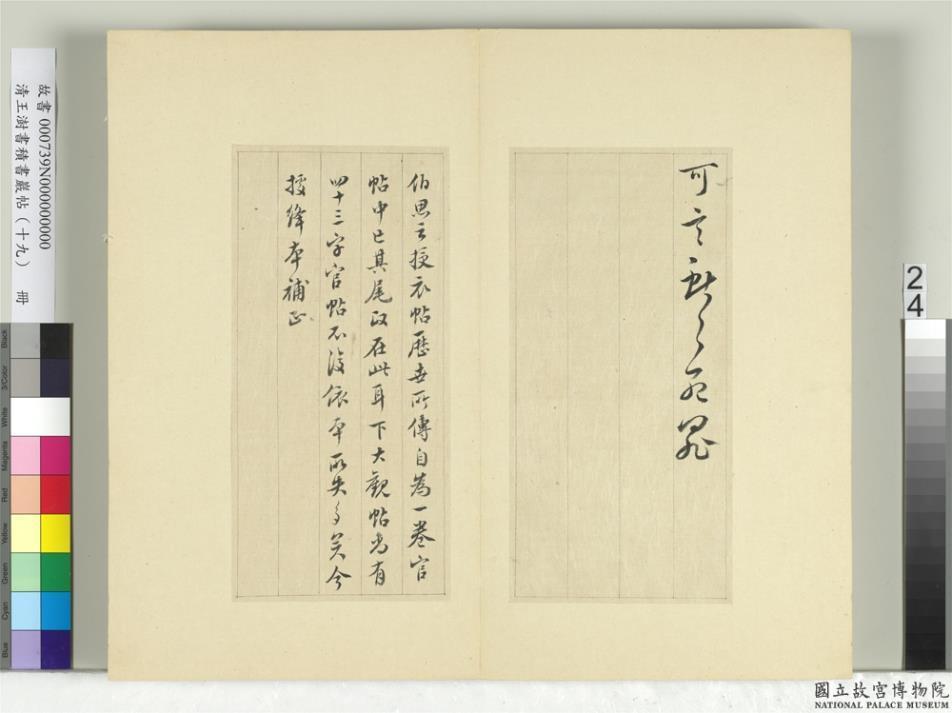 可言
伯思云授衣帖歷世所傳自為一卷官
帖中亡其尾政在此耳下大觀帖尚有
四十三字官帖不復依本所失多矣今
據絳本補正
故書 000739N000000000
清王澍書積書巖帖(十九) 冊
24
Black
3/Color
White
Magenta
Red
Yellow
Green
Cyan
Blue
國立故宮博物院
NATIONAL PALACE MUSEUM